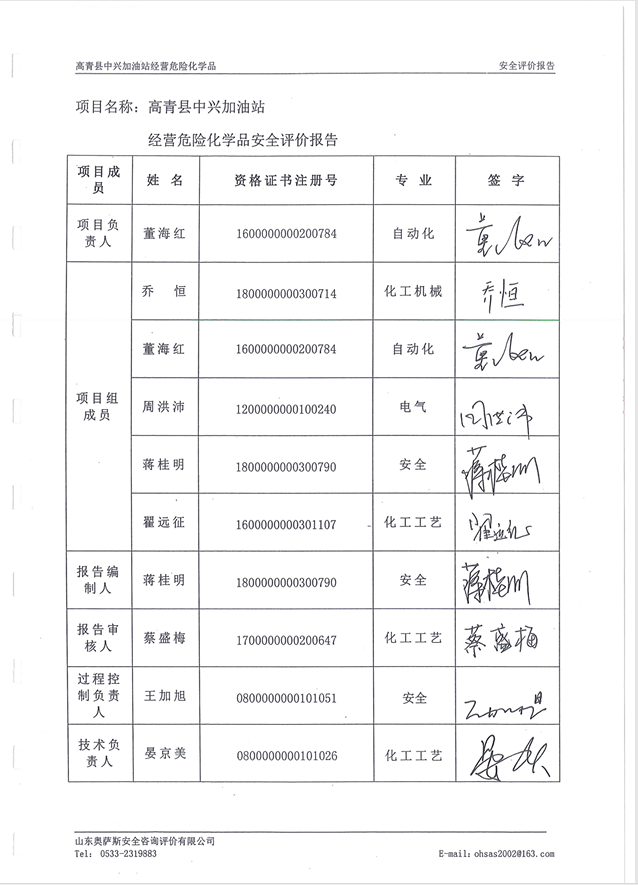 高青县中兴加油站经营危险化学品 安全评价报告
项目名称：高青县中兴加油站
经营危险化学品安全评价报告
项目成员 姓 名 资格证书注册号 专 业 签 字
项目负责人 董海红 1600000000200784 自动化 董海红
项目组成员 乔 恒 1800000000300714 化工机械 乔恒
董海红 1600000000200784 自动化 董海红
周洪沛 1200000000100240 电气 周洪沛
蒋桂明 1800000000300790 安全 蒋桂明
翟远征 1600000000301107 化工工艺 翟远征
报告编制人 蒋桂明 1800000000300790 安全 蒋桂明
报告审核人 蔡盛梅 1700000000200647 化工工艺 蔡盛梅
过程控制负责人 王加旭 0800000000101051 安全 王加旭
技术负责人 晏京美 0800000000101026 化工工艺
山东奥萨斯安全咨询评价有限公司
Tel: 0533-2319883 E-mail:ohsas2002@163.com